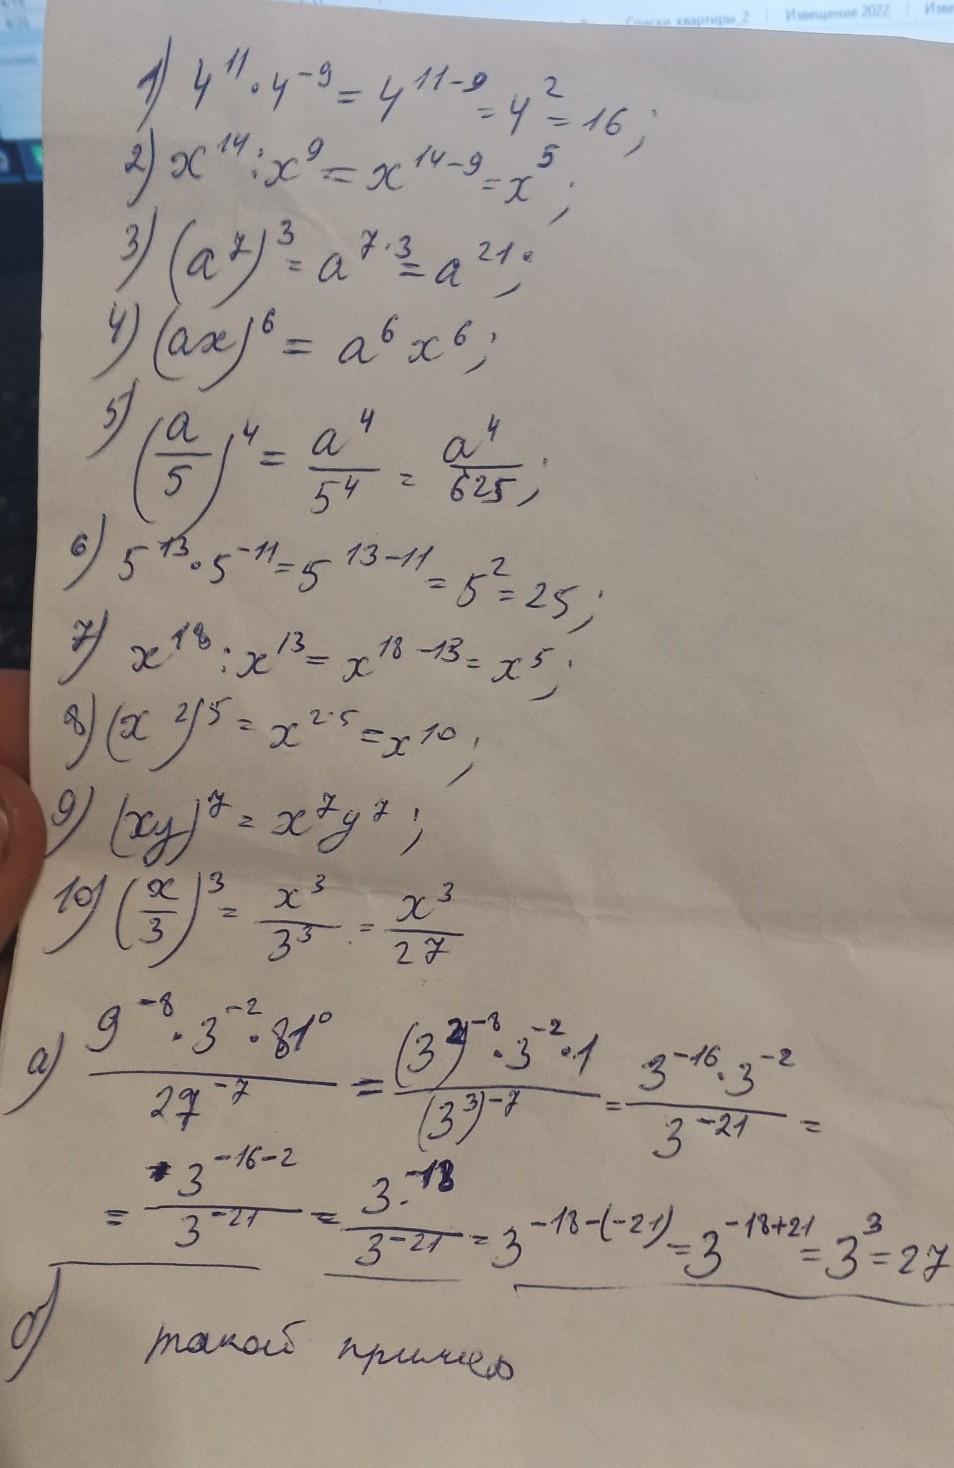 Списки квартиры_2 | Извещение 2022 | Изве
1) 4¹¹·4⁻⁹ = 4¹¹⁻⁹ = 4² = 16;
2) x¹⁴ : x⁹ = x¹⁴⁻⁹ = x⁵;
3) (a⁷)³ = a⁷·³ = a²¹;
4) (ax)⁶ = a⁶x⁶;
5) (a/5)⁴ = a⁴/5⁴ = a⁴/625;
6) 5¹³·5⁻¹¹ = 5¹³⁻¹¹ = 5² = 25;
7) x¹⁸ : x¹³ = x¹⁸⁻¹³ = x⁵;
8) (x²)⁵ = x²·⁵ = x¹⁰;
9) (xy)⁷ = x⁷y⁷;
10) (x/3)³ = x³/3³ = x³/27
а) (9⁻⁸·3⁻²·81⁰)/27⁻⁷ = ((3²)⁻⁸·3⁻²·1)/(3³)⁻⁷ = (3⁻¹⁶·3⁻²)/3⁻²¹ =
= 3⁻¹⁶⁻²/3⁻²¹ = 3⁻¹⁸/3⁻²¹ = 3⁻¹⁸⁻⁽⁻²¹⁾ = 3⁻¹⁸⁺²¹ = 3³ = 27
б) такой пример